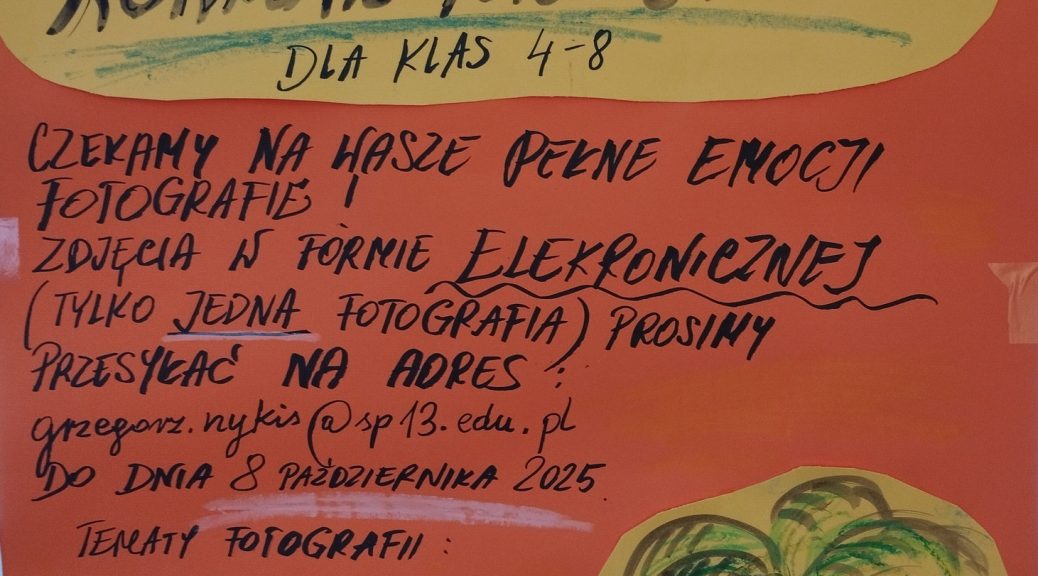 DLA KLAS 4-8
CZEKAMY NA WASZE PEŁNE EMOCJI
FOTOGRAFIE!
ZDJĘCIA W FORMIE ELEKRONICZNEJ
(TYLKO JEDNA FOTOGRAFIA) PROSIMY
PRZESYŁAĆ NA ADRES:
grzegorz.nykis@sp13.edu.pl
DO DNIA 8 PAŹDZIERNIKA 2025
TEMATY FOTOGRAFII: